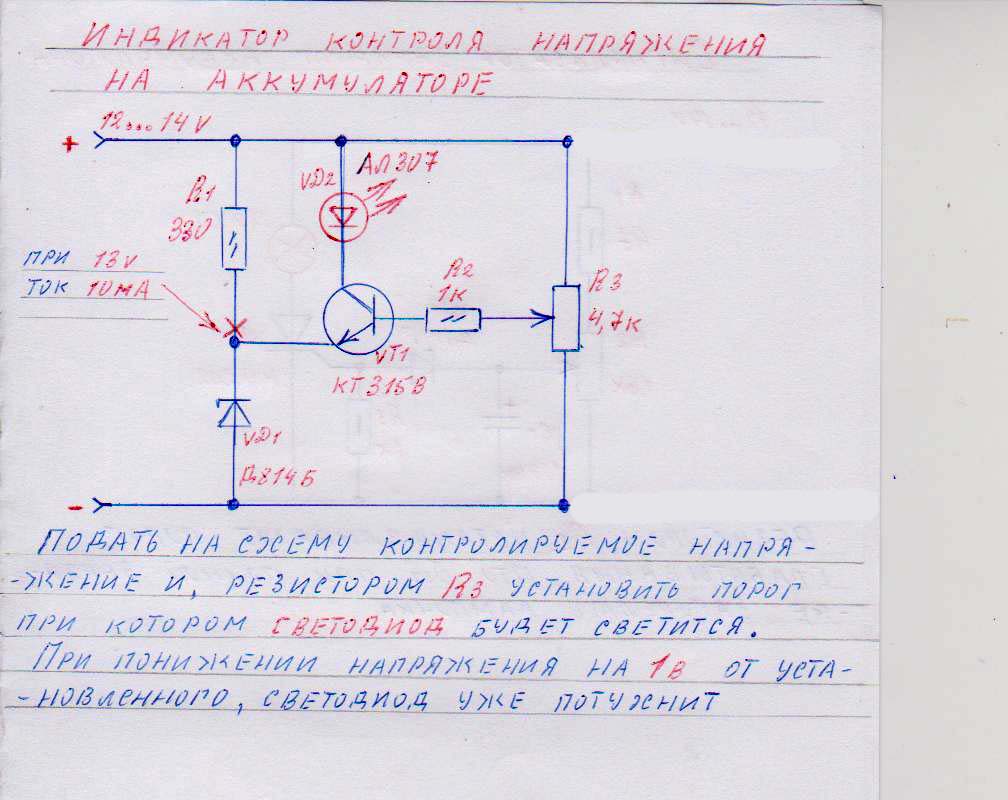 ИНДИКАТОР КОНТРОЛЯ НАПРЯЖЕНИЯ
НА АККУМУЛЯТОРЕ
+ 12...14V
АЛ307
VD2
R1
330
ПРИ 13V
ТОК 10МА
R2
1К
R3
4,7К
VT1
КТ315В
VD1
Д814Б
-
ПОДАТЬ НА СХЕМУ КОНТРОЛИРУЕМОЕ НАПРЯ-
-ЖЕНИЕ И, РЕЗИСТОРОМ R3 УСТАНОВИТЬ ПОРОГ
ПРИ КОТОРОМ СВЕТОДИОД БУДЕТ СВЕТИТСЯ.
ПРИ ПОНИЖЕНИИ НАПРЯЖЕНИЯ НА 1В ОТ УСТА-
-НОВЛЕННОГО, СВЕТОДИОД УЖЕ ПОТУХНИТ